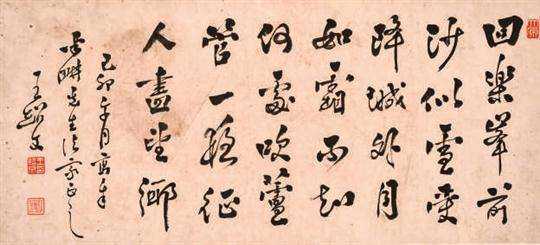 回樂峯前
沙似雪受
降城外月
如霜不知
何處吹蘆
管一夜征
人盡望鄉
己卯月
先生法家正之
王